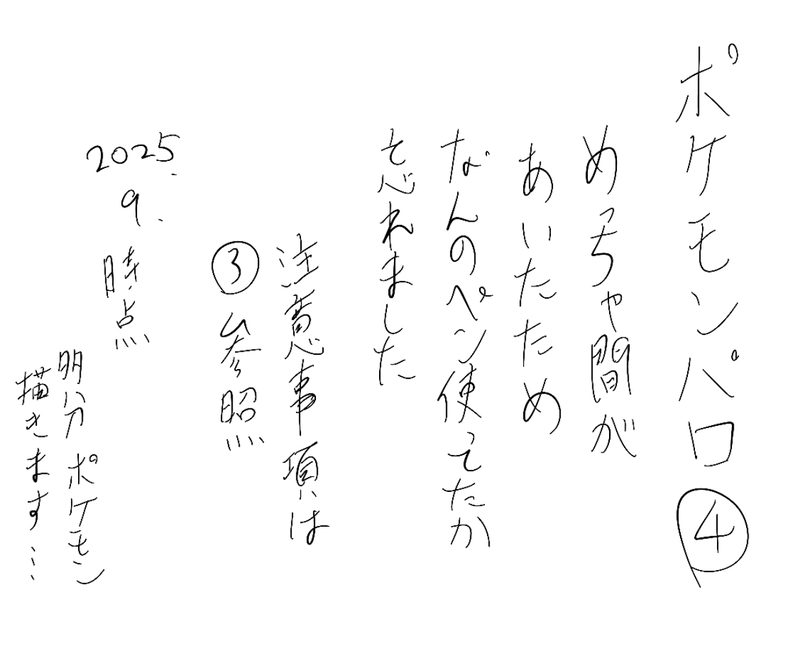 ポケモンパロ④
めっちゃ間が
あいたため
なんのペン使ってたか
忘れました
注意事項は
③参照
2025.
9.
時点
ポケモン
描きます…